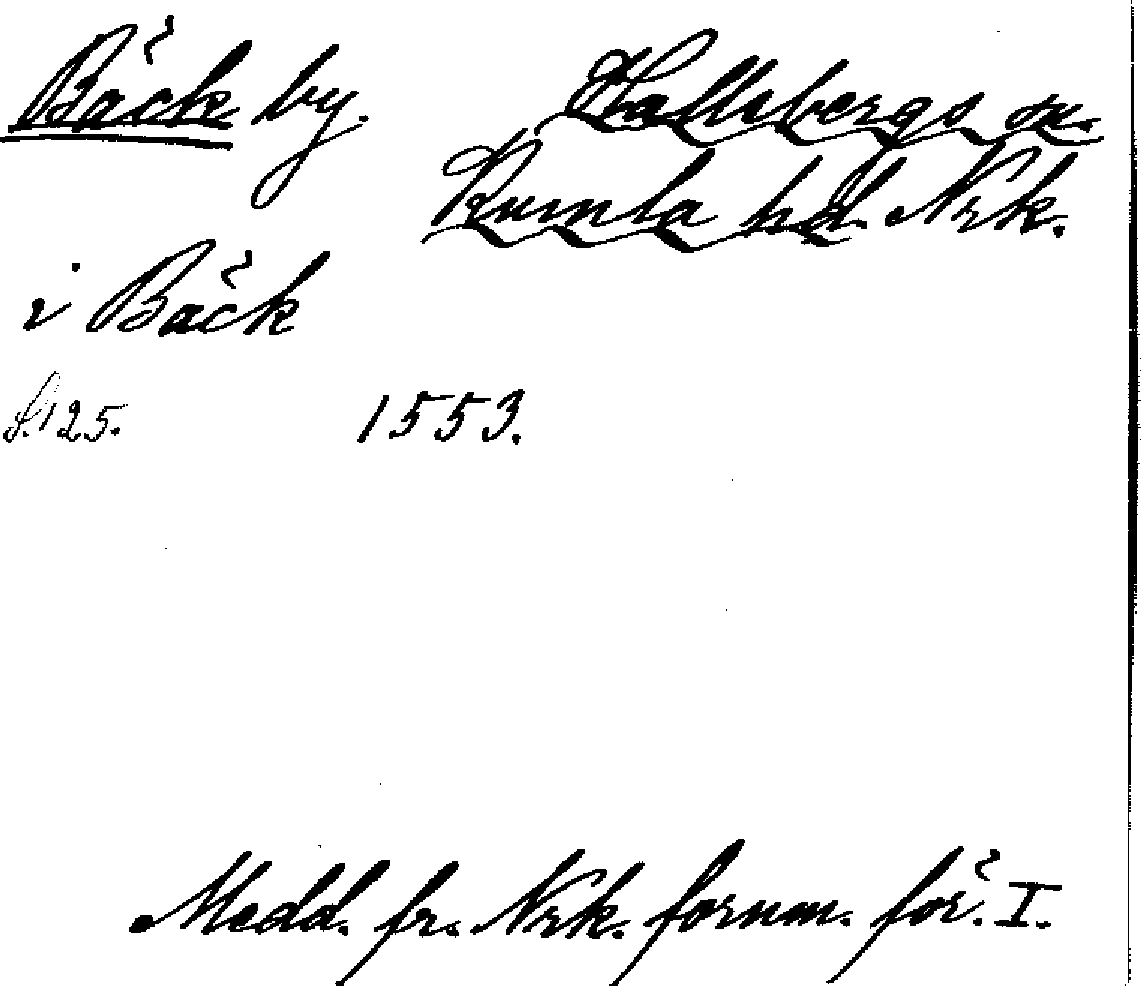 Bäck by. Hallsbergs sn.
Kumla hd. Nrk.
i Bäck
S. 125. 1553.
Medd. fr. Nrk. fornm. för. I.